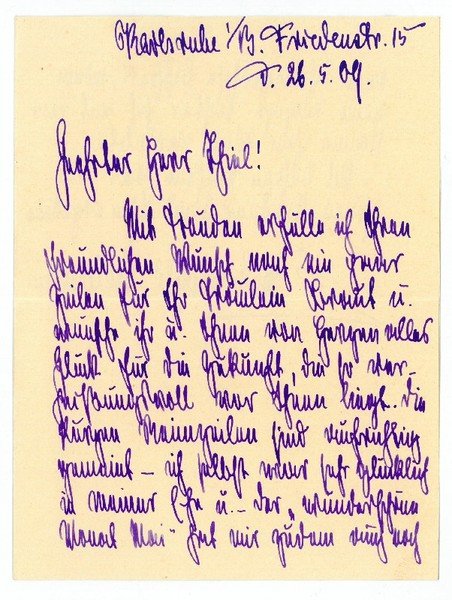 Karlsruhe i/B. Friedenstr. 15
d. 26.5.09.
Geehrter Herr Thiel!
Mit Freuden erfülle ich Ihren
freundlichen Wunsch nach ein paar
Zeilen für Ihr Fräulein Braut u.
wünsche ihr u. Ihnen von Herzen alles
Glück für die Zukunft, die so ver-
heißungsvoll vor Ihnen liegt. Die
kurzen Reimzeilen sind aufrichtig
gemeint – ich selbst war sehr glücklich
in meiner Ehe u. – der „wunderschöne
Monat Mai" hat mir zudem auch noch